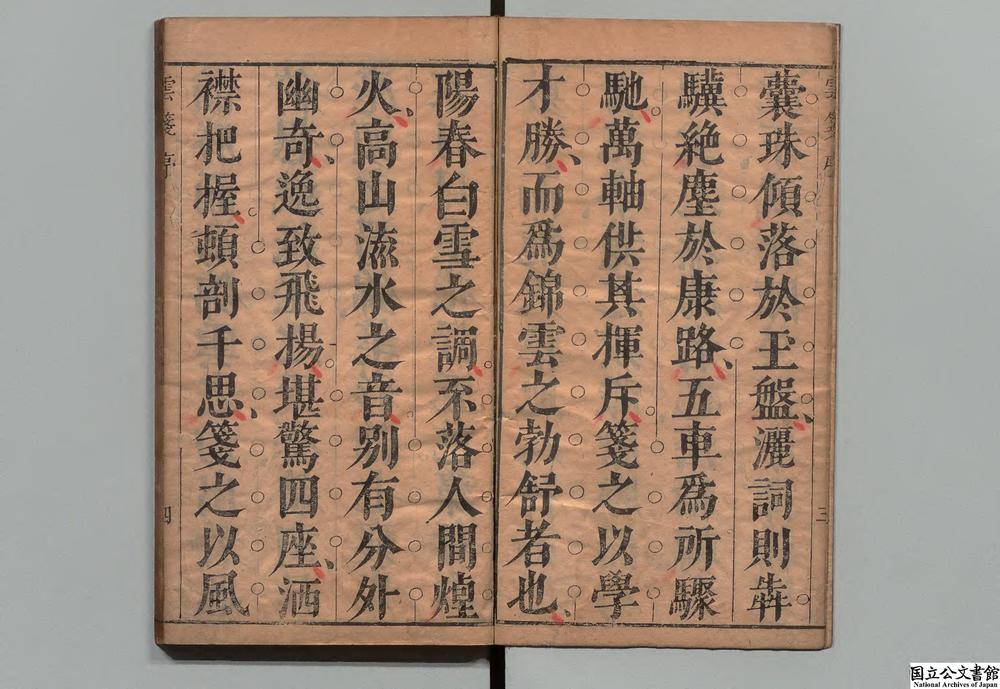 雲箋 序 三
囊珠傾落於玉盤灑詞則犇
驥絶塵於康路五車爲所驟
馳萬軸供其揮斥箋之以學
才勝而爲錦雲之勃舒者也
陽春白雪之調不落人間煙
火高山流水之音别有分外
幽奇逸致飛揚堪驚四座洒
襟把握頓剖千思箋之以風
雲箋 序 四
国立公文書館
National Archives of Japan